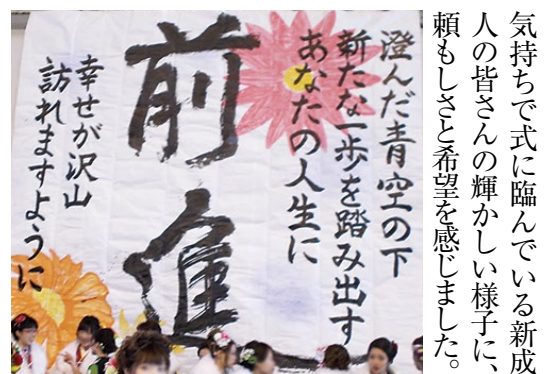 気持ちで式に臨んでいる新成
人の皆さんの輝かしい様子に、
頼もしさと希望を感じました。
澄んだ青空の下
新たな一歩を踏み出す
あなたの人生に
前進
幸せが沢山
訪れますように